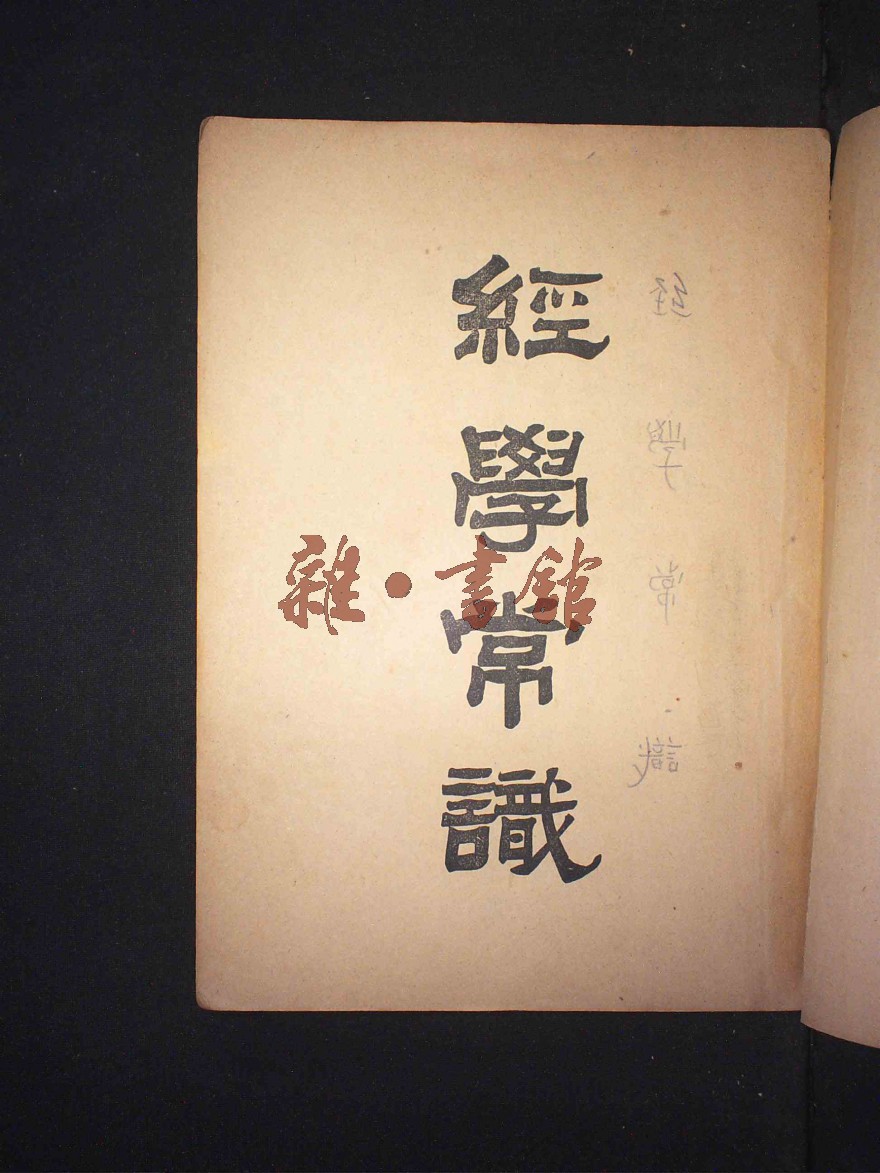 經學常識
經學常識
雜·書館